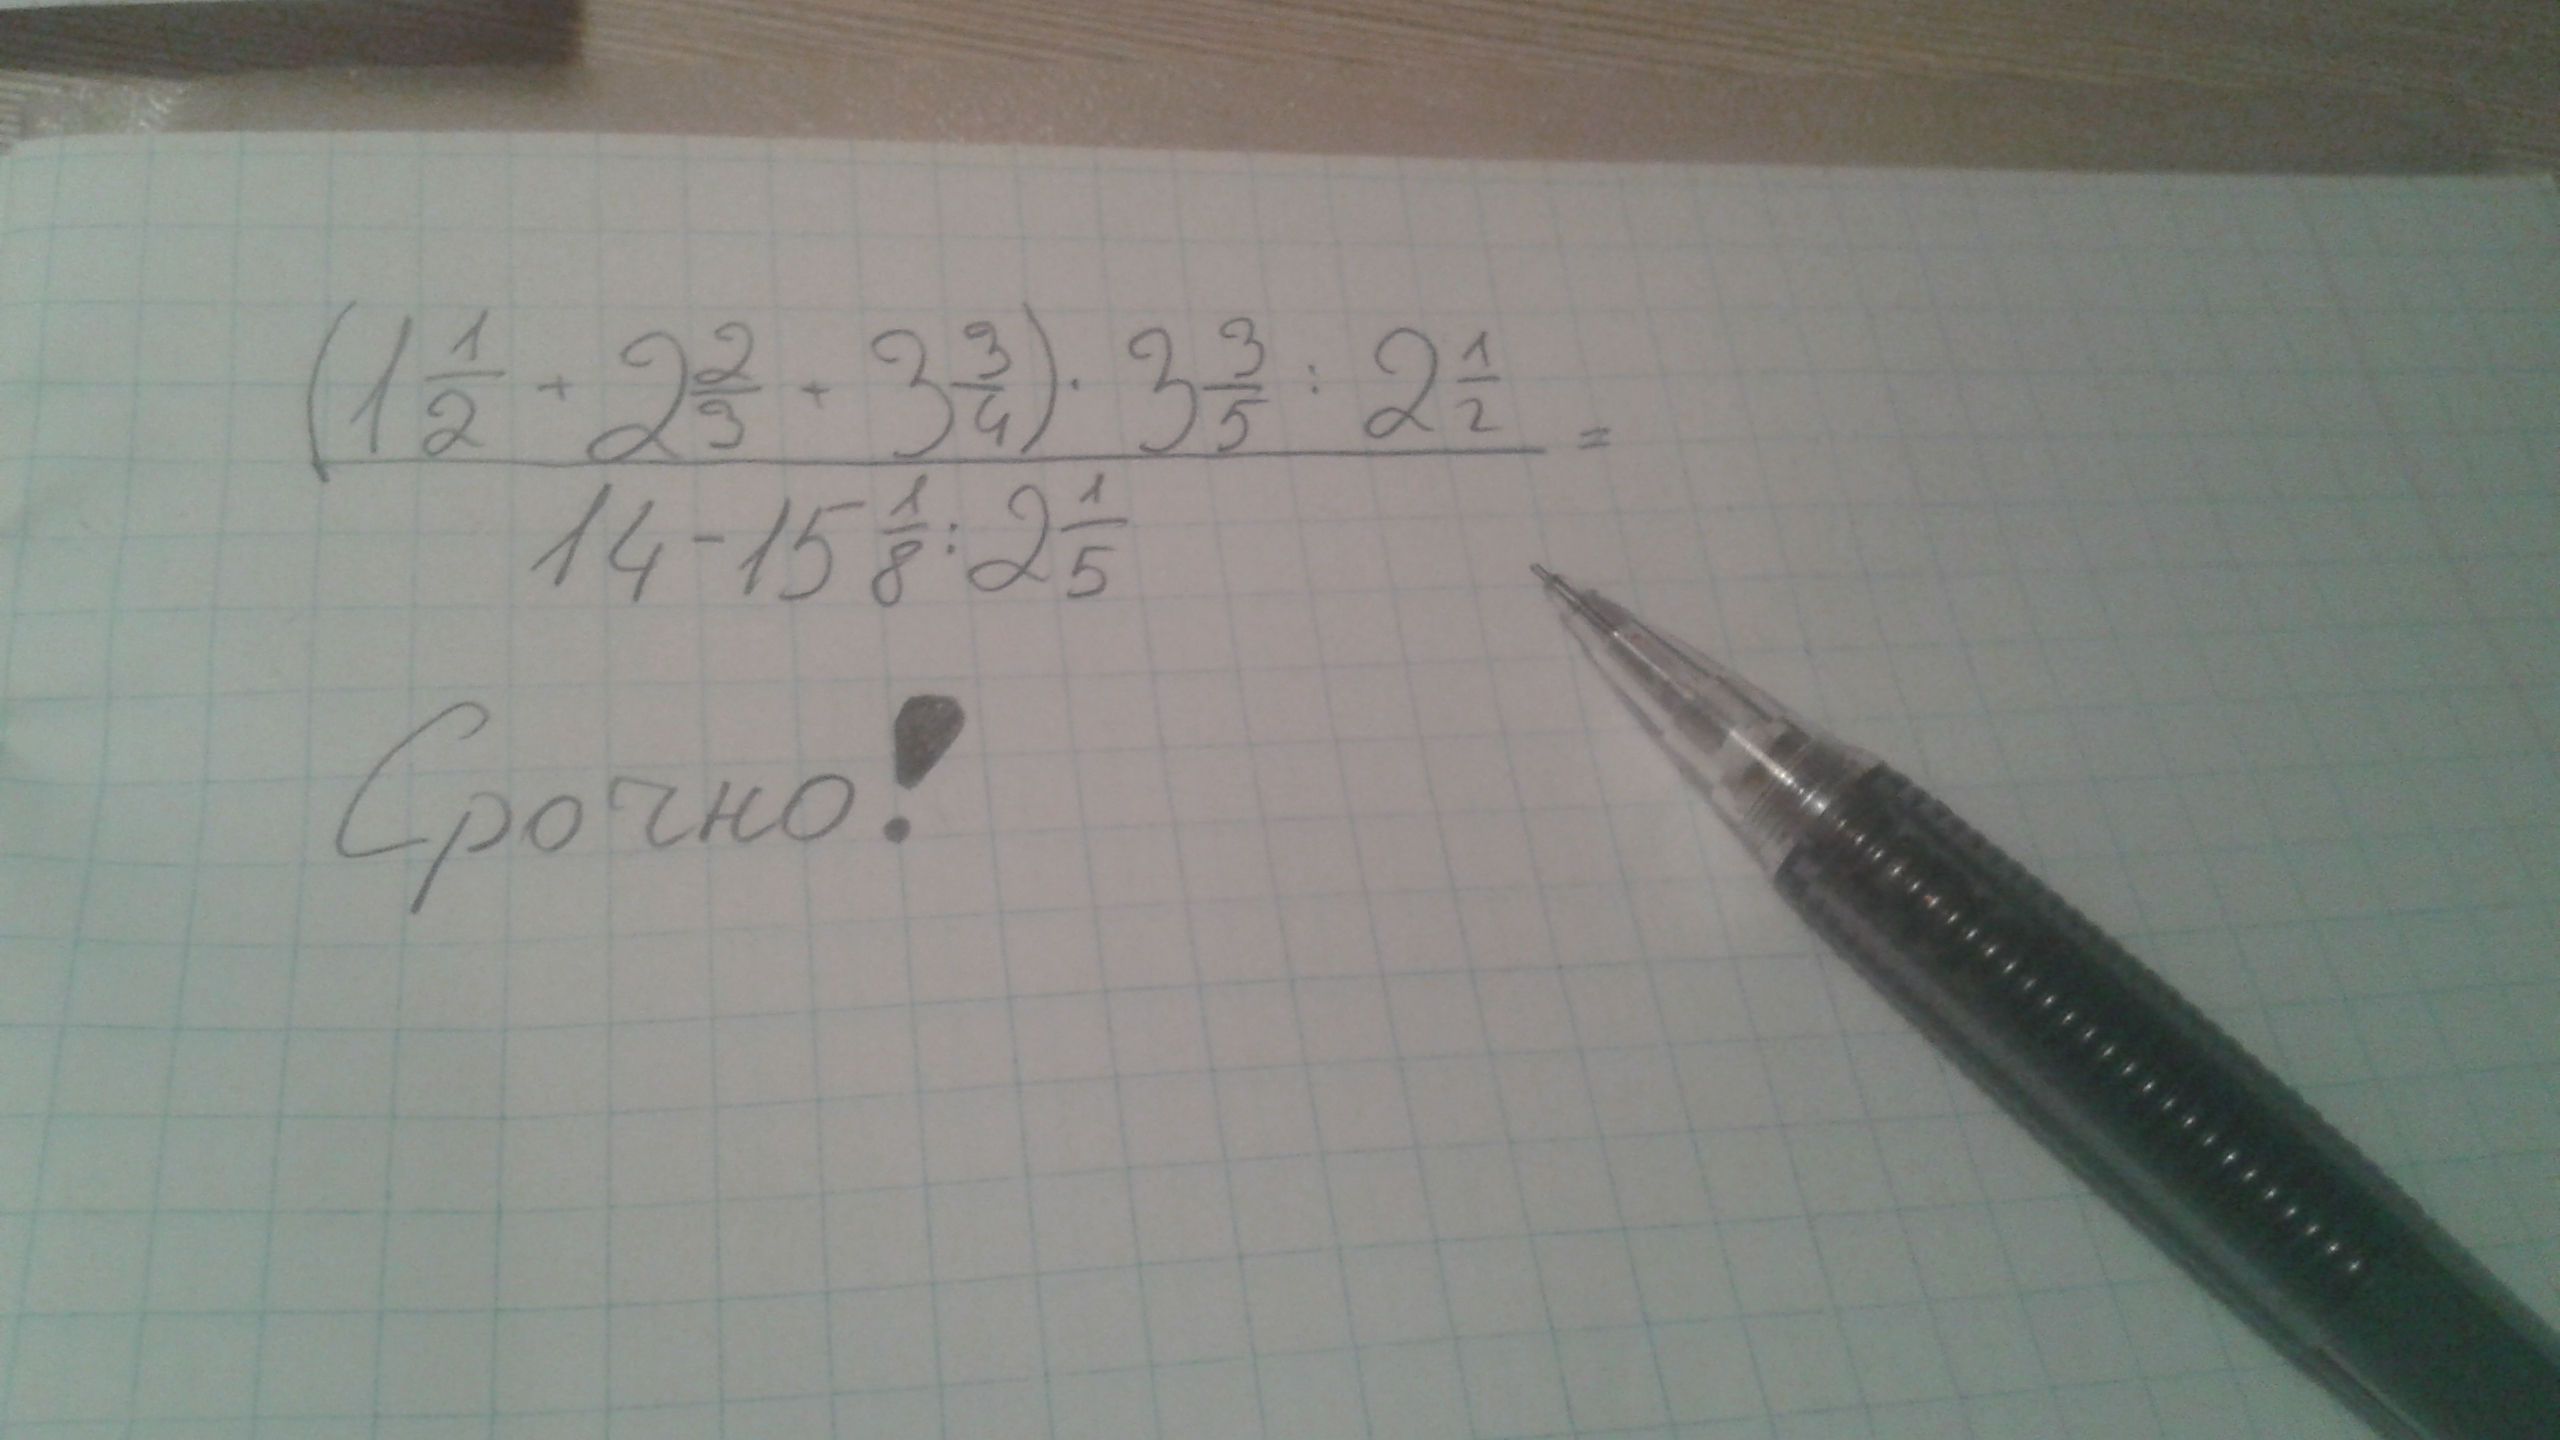 (1 1/2 + 2 2/3 + 3 3/4) · 3 3/5 : 2 1/2 =
14 - 15 1/8 : 2 1/5
Срочно!